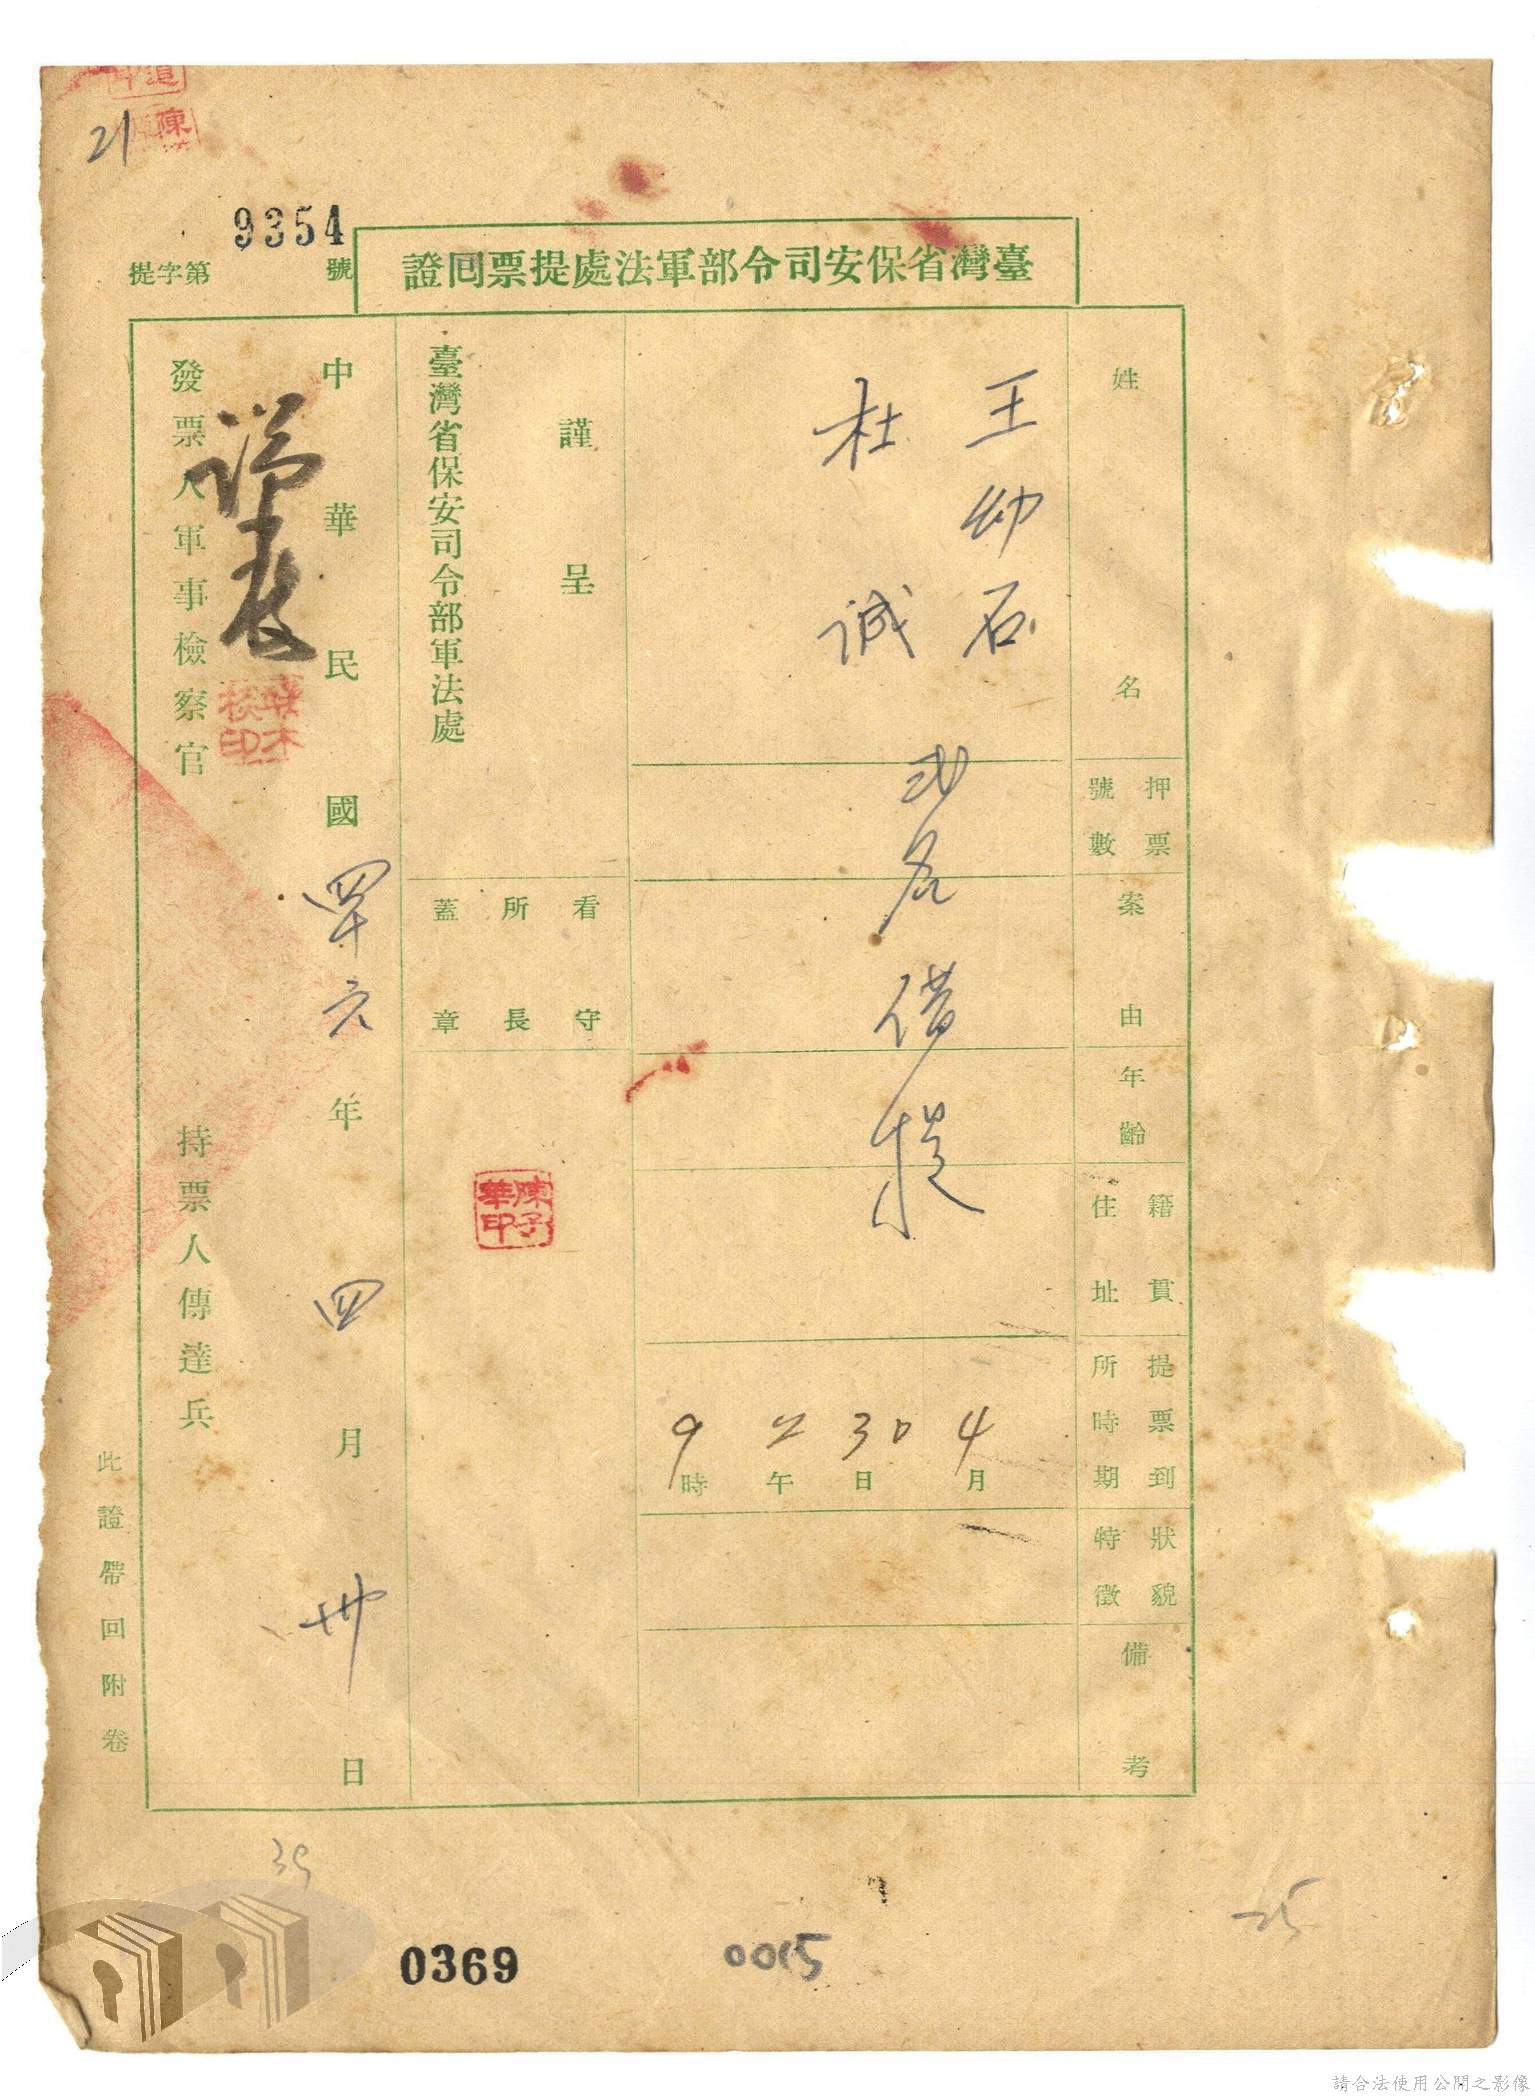 21
陳
9354
提字第 號
臺灣省保安司令部軍法處提票回證
姓名
王幼石
杜誠
弍名借提
押票號數
案由
年齡
籍貫住址
提票到所時期
4月30日上午9時
狀貌特徵
備考
謹呈
臺灣省保安司令部軍法處
看守所長蓋章
陳子華印
中華民國四十六年四月卅日
發票人軍事檢察官
持票人傳達兵
此證帶回附卷
39
0369
0015
25
請合法使用公開之影像